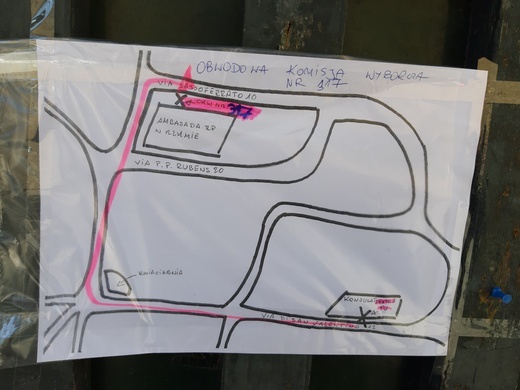 OBWODOWA KOMISJA WYBORCZA
NR 317
VIA SASSOFERRATO 10
OKW NR 317
AMBASADA RP
W RZYMIE
VIA P.P. RUBENS 20
KWIACIARNIA
KONSULAT
VIA DI SAN VALENTINO